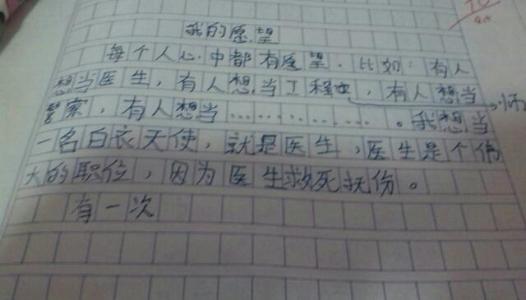 我的愿望
每个人心中都有愿望。比如:有人
想当医生,有人想当工程师,有人想当
警察,有人想当………………。我想当
一名白衣天使,就是医生,医生是个伟
大的职位,因为医生救死扶伤。
有一次